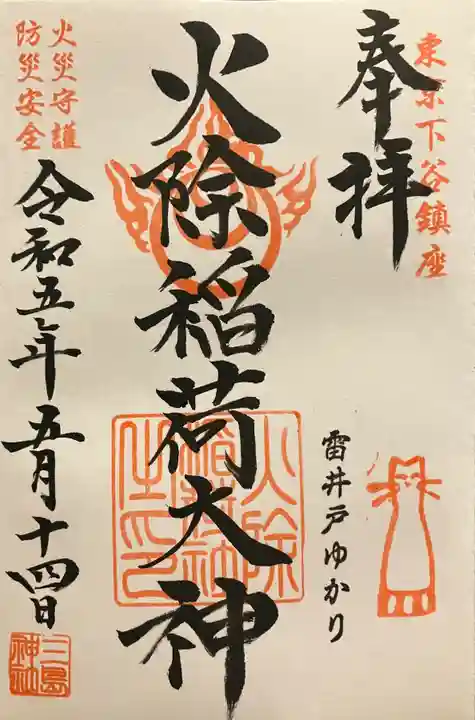 東京下谷鎮座
奉拝
雷井戸ゆかり
火除稲荷大神
火除
稲荷神
之印
火災守護
防災安全
令和五年五月十四日
三島
神社